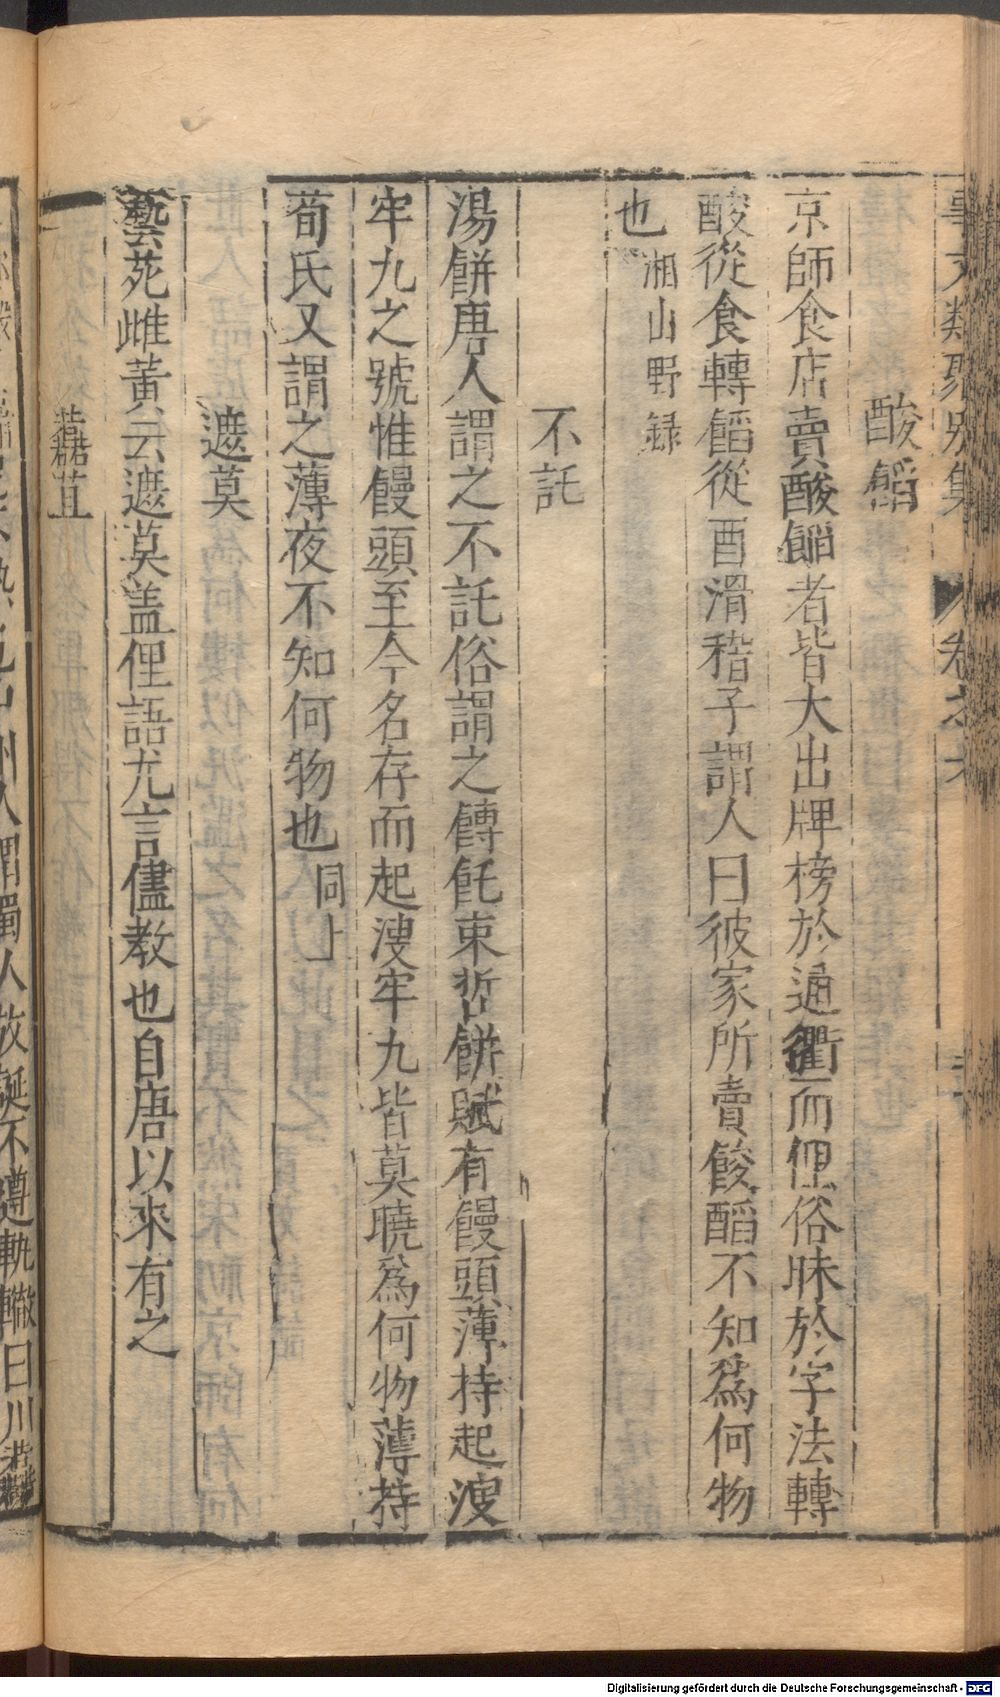 事文類聚別集 卷之六
酸餡
京師食店賣酸餡者皆大出牌榜於通衢而俚俗昧於字法轉
酸從食轉餡從酉滑稽子謂人曰彼家所賣餕醄不知爲何物
也 湘山野録
不託
湯餅唐人謂之不託俗謂之餺飥束晳餅賦有饅頭薄持起溲
牢九之號惟饅頭至今名存而起溲牢九皆莫曉爲何物薄持
荀氏又謂之薄夜不知何物也 同上
遮莫
藝苑雌黃云遮莫盖俚語尤言儘教也自唐以來有之
蘲苴
人謂蜀人放誕不遵軌轍曰川
Digitalisierung gefördert durch die Deutsche Forschungsgemeinschaft - DFG